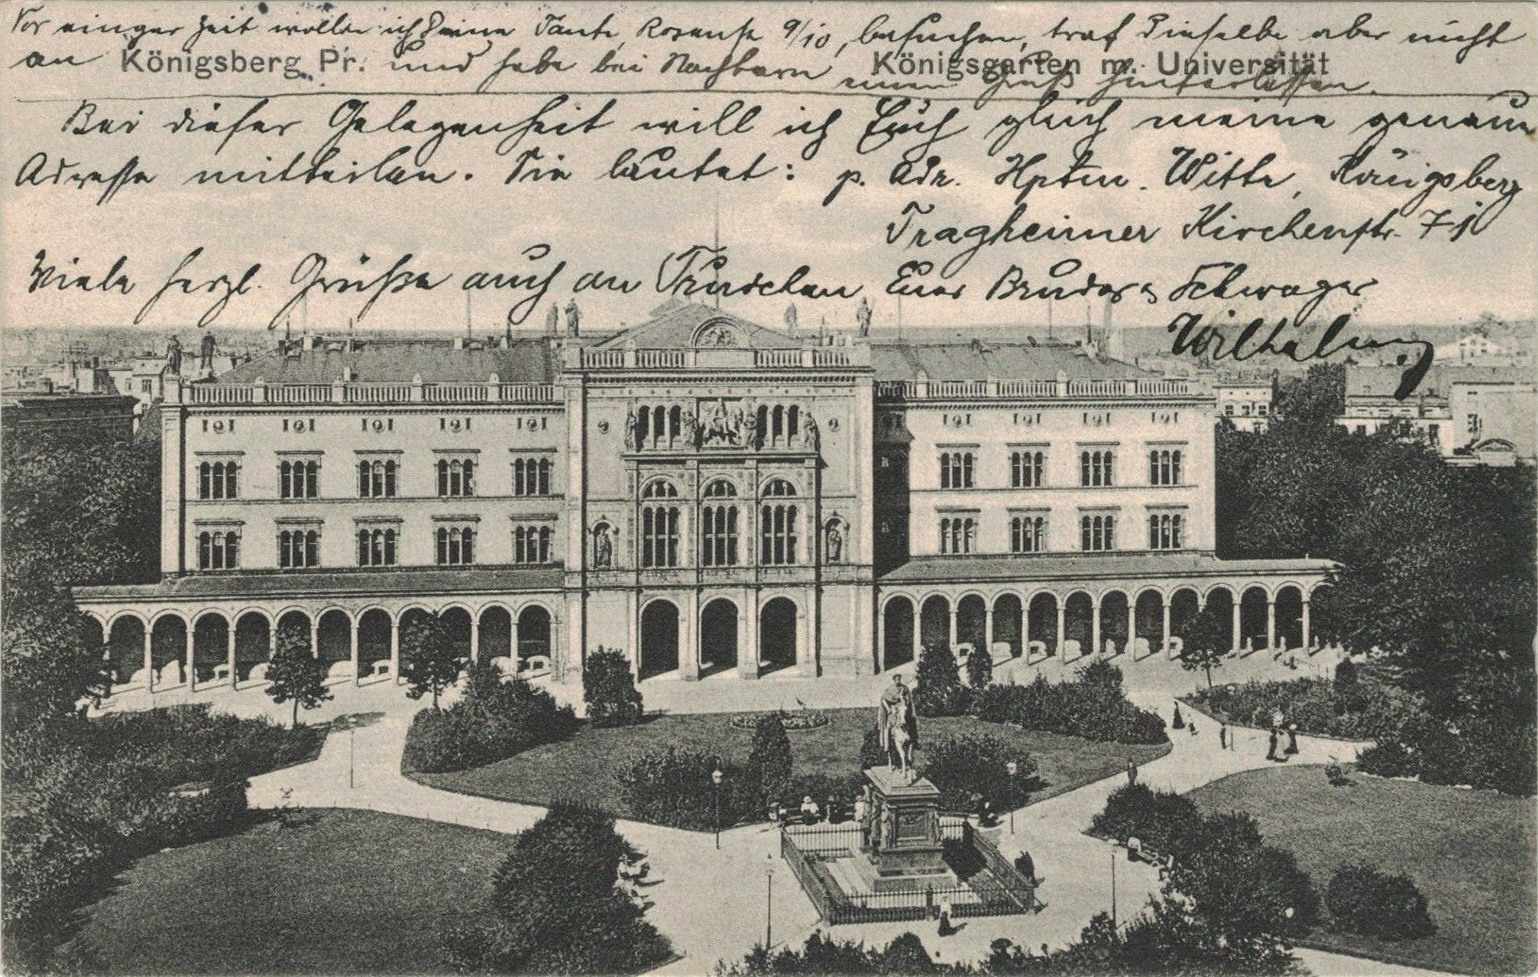 Vor einger Zeit wollte ich Deine Tante, Rosenstr. 9/10, besuchen, traf Dieselbe aber nicht
an Königsberg Pr. und habe bei Nachbarn Königsgarten m. Universität
einen Gruß hinterlassen.
Bei dieser Gelegenheit will ich Euch gleich meine genaue
Adresse mitteilen. Sie lautet: p. Adr. Hptm. Witte, Königsberg
Tragheimer Kirchenstr. 7
Viele herzl. Grüße auch an Trudchen Euer Bruder & Schwager
Wilhelm